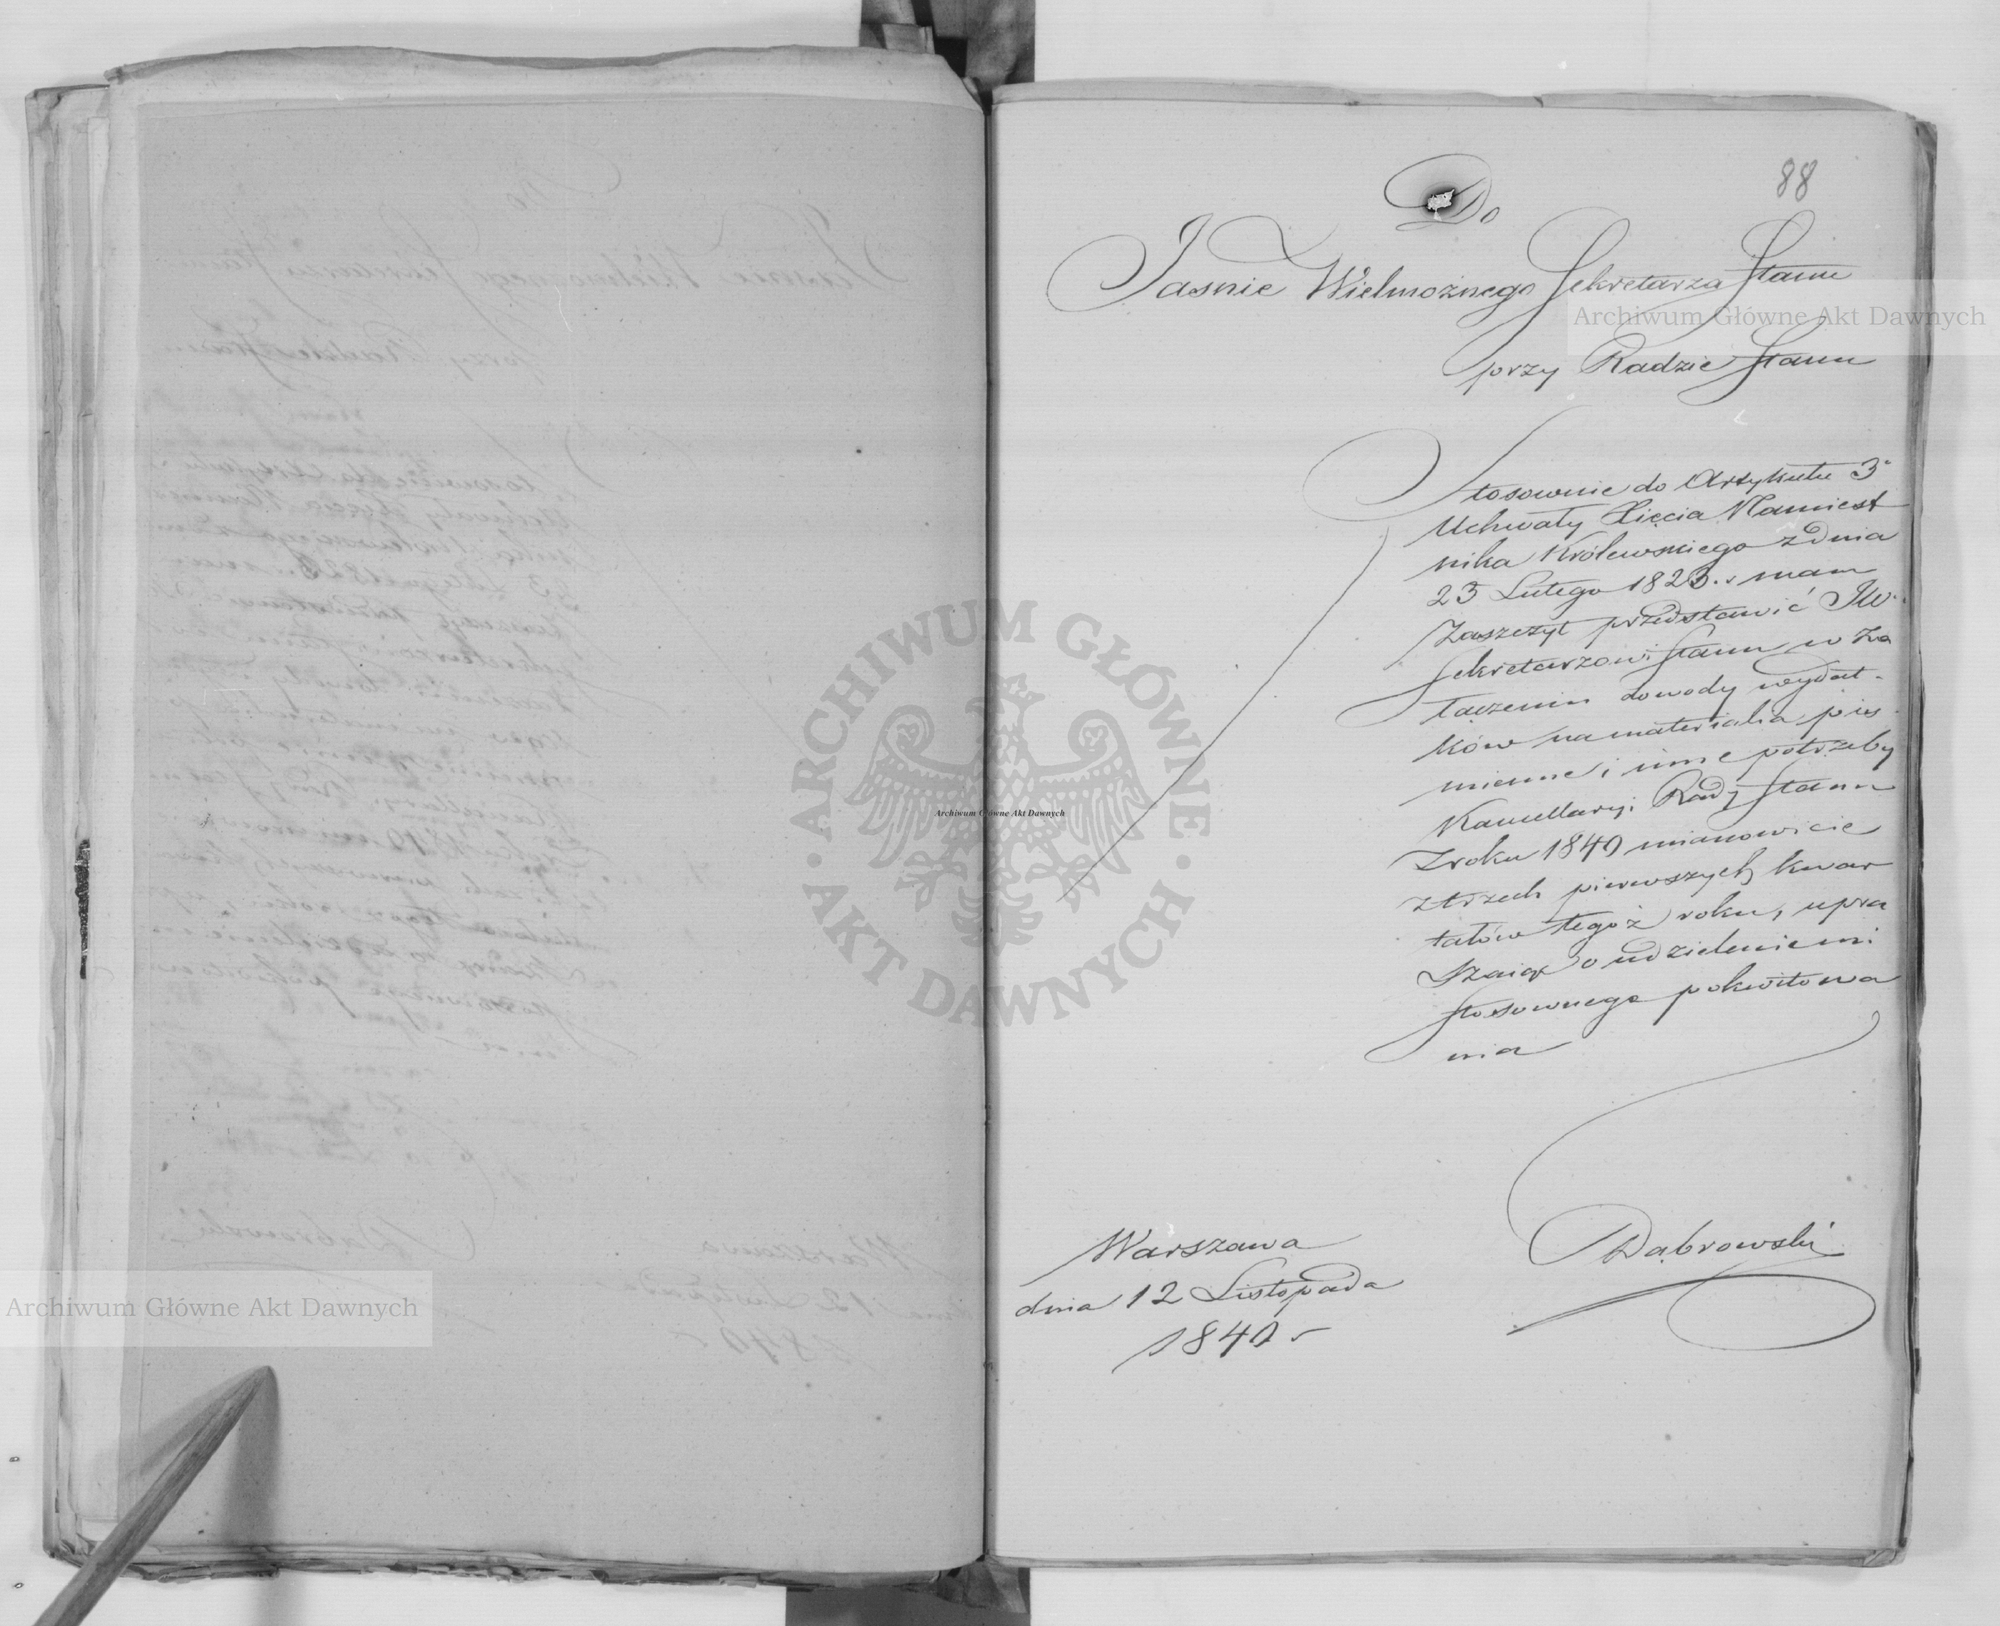 88
Do
Jasnie Wielmożnego Sekretarza Stanu
przy Radzie Stanu
Stosownie do Artykułu 3º
Uchwały Xięcia Namiest
nika Królewskiego z dnia
23 Lutego 1823. mam
zaszczyt przedstawić JW.
Sekretarzowi Stanu w za
łączeniu dowody wydat-
ków na materialia piś
mienne i inne potrzeby
Kancellaryi Rady Stanu
z roku 1840 mianowicie
z trzech pierwszych kwar
tałów tegoż roku, upra
szając o udzielenie mi
stosownego pokwitowa
nia
Dąbrowski
Warszawa
dnia 12 Listopada
1840
Archiwum Główne Akt Dawnych
Archiwum Główne Akt Dawnych
Archiwum Główne Akt Dawnych
ARCHIWUM GŁÓWNE · AKT DAWNYCH ·